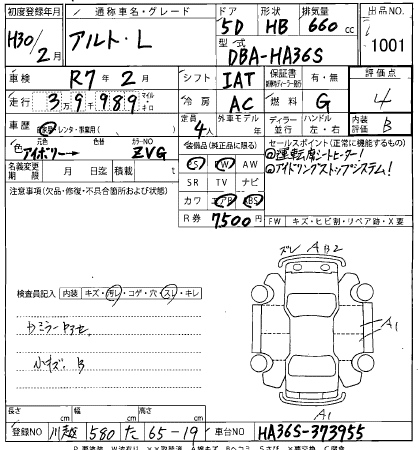 初度登録年月 通称車名・グレード ドア 形状 排気量 出品NO
H30/2月 アルト・L 5D HB 660cc 1001
型式 DBA-HA36S
車検 R7年2月 シフト IAT 保証書 有・無 評価点
走行 3万9千989 マイル キロ 冷房 AC 燃料 G 4
車歴 自家用・レンタ・事業用( ) 定員 4人 外車モデル 年 ディーラー 並行 ハンドル 左・右 内装評価 B
色 元色 アイボリー→ 色替 カラーNO ZVG
装備品(純正品に限る) セールスポイント(正常に機能するもの)
名義変更期限 月 日迄 積載 t
PS PW AW ◎運転席シートヒーター!
SR TV ナビ ◎アイドリングストップシステム!
カワ エアB ABS
R券 7500円 FW キズ・ヒビ割・リペア跡・X要
注意事項(欠品・修復・不具合箇所および状態)
ズレ A B2
検査員記入 内装 キズ・汚レ・コゲ・穴・スレ・キレ
小キズ、B
A A1
A1
長さ cm 幅 cm 高さ cm
登録NO 川越 580 た 65-19 車台NO HA36S-373955